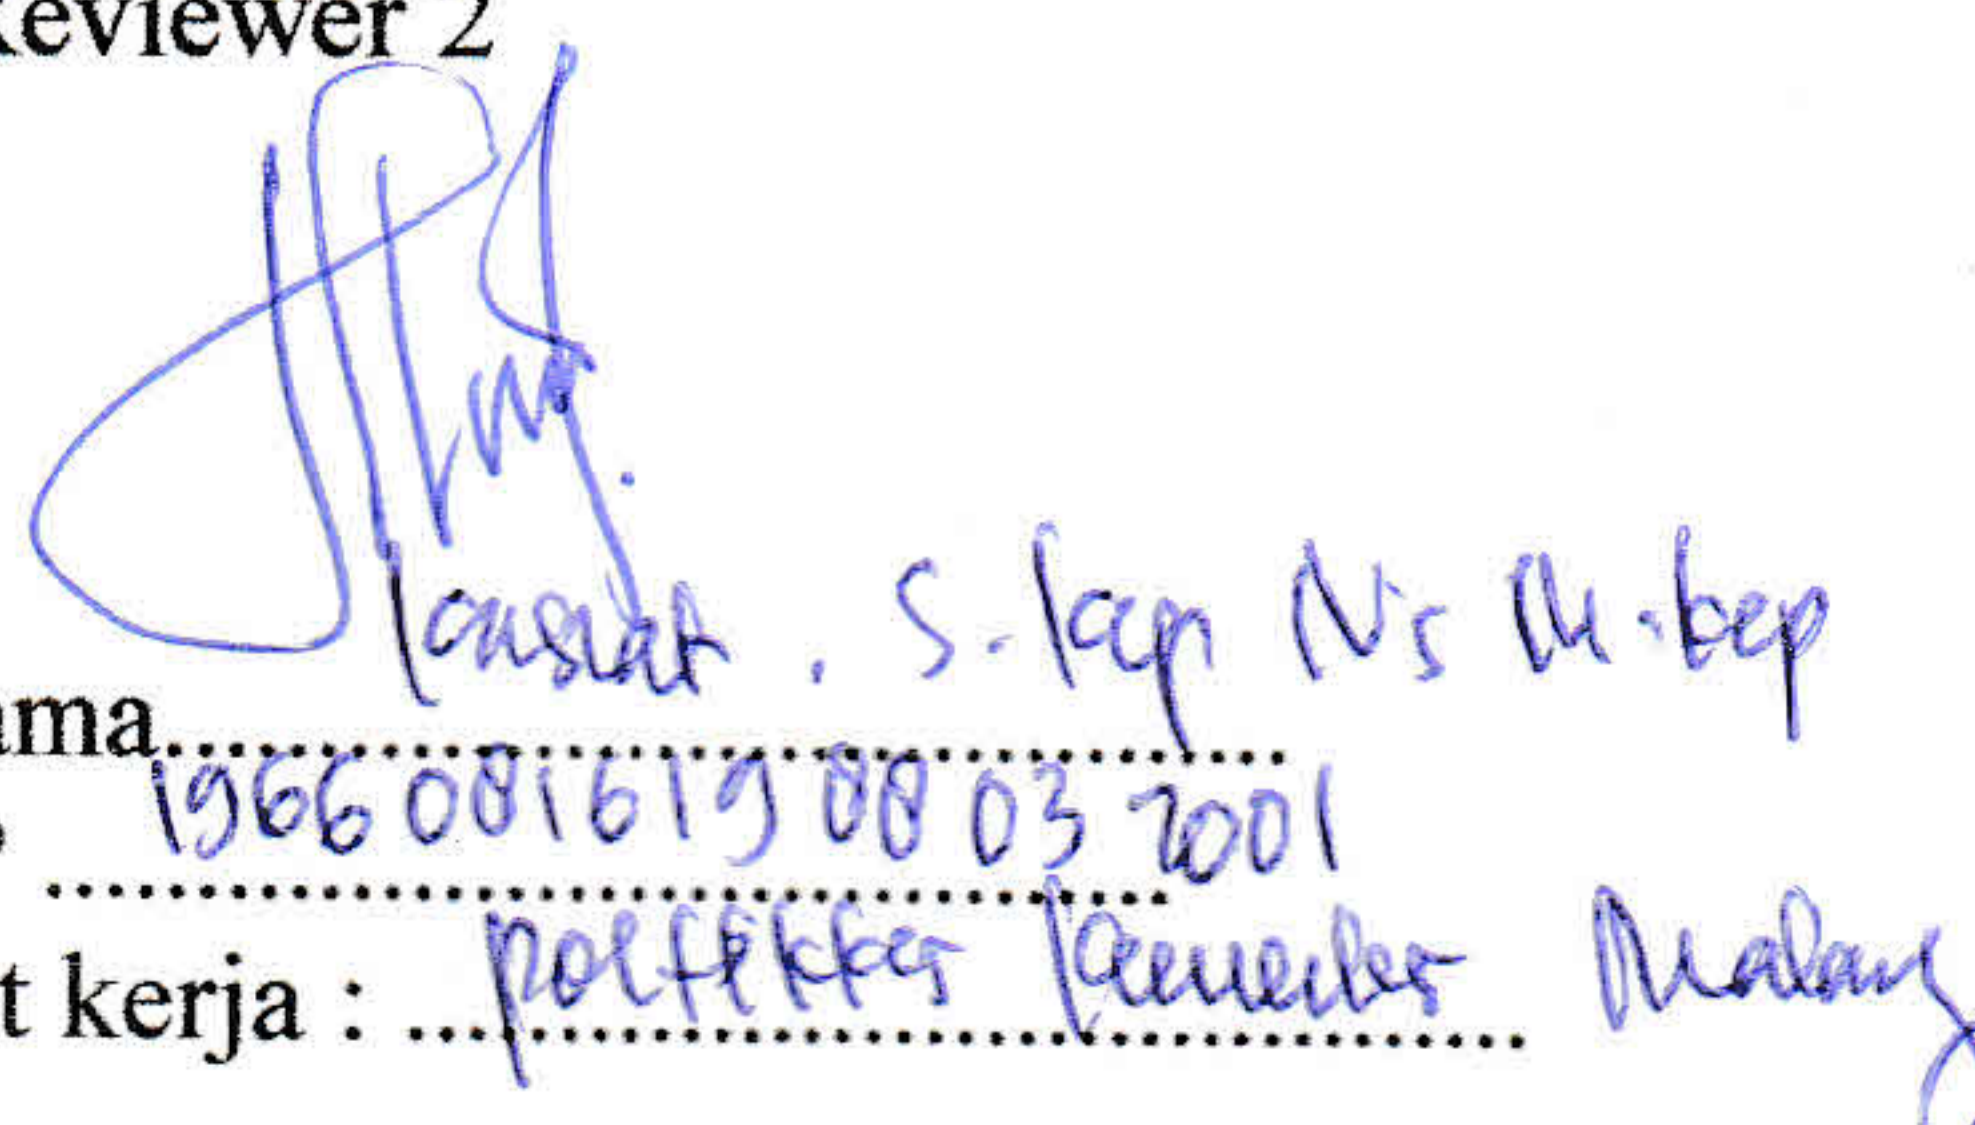 Reviewer 2
Kasiati. S.Kep Ns M.Kep
ama..........
196608161988032001
t kerja : Poltekkes Kemenkes Malang